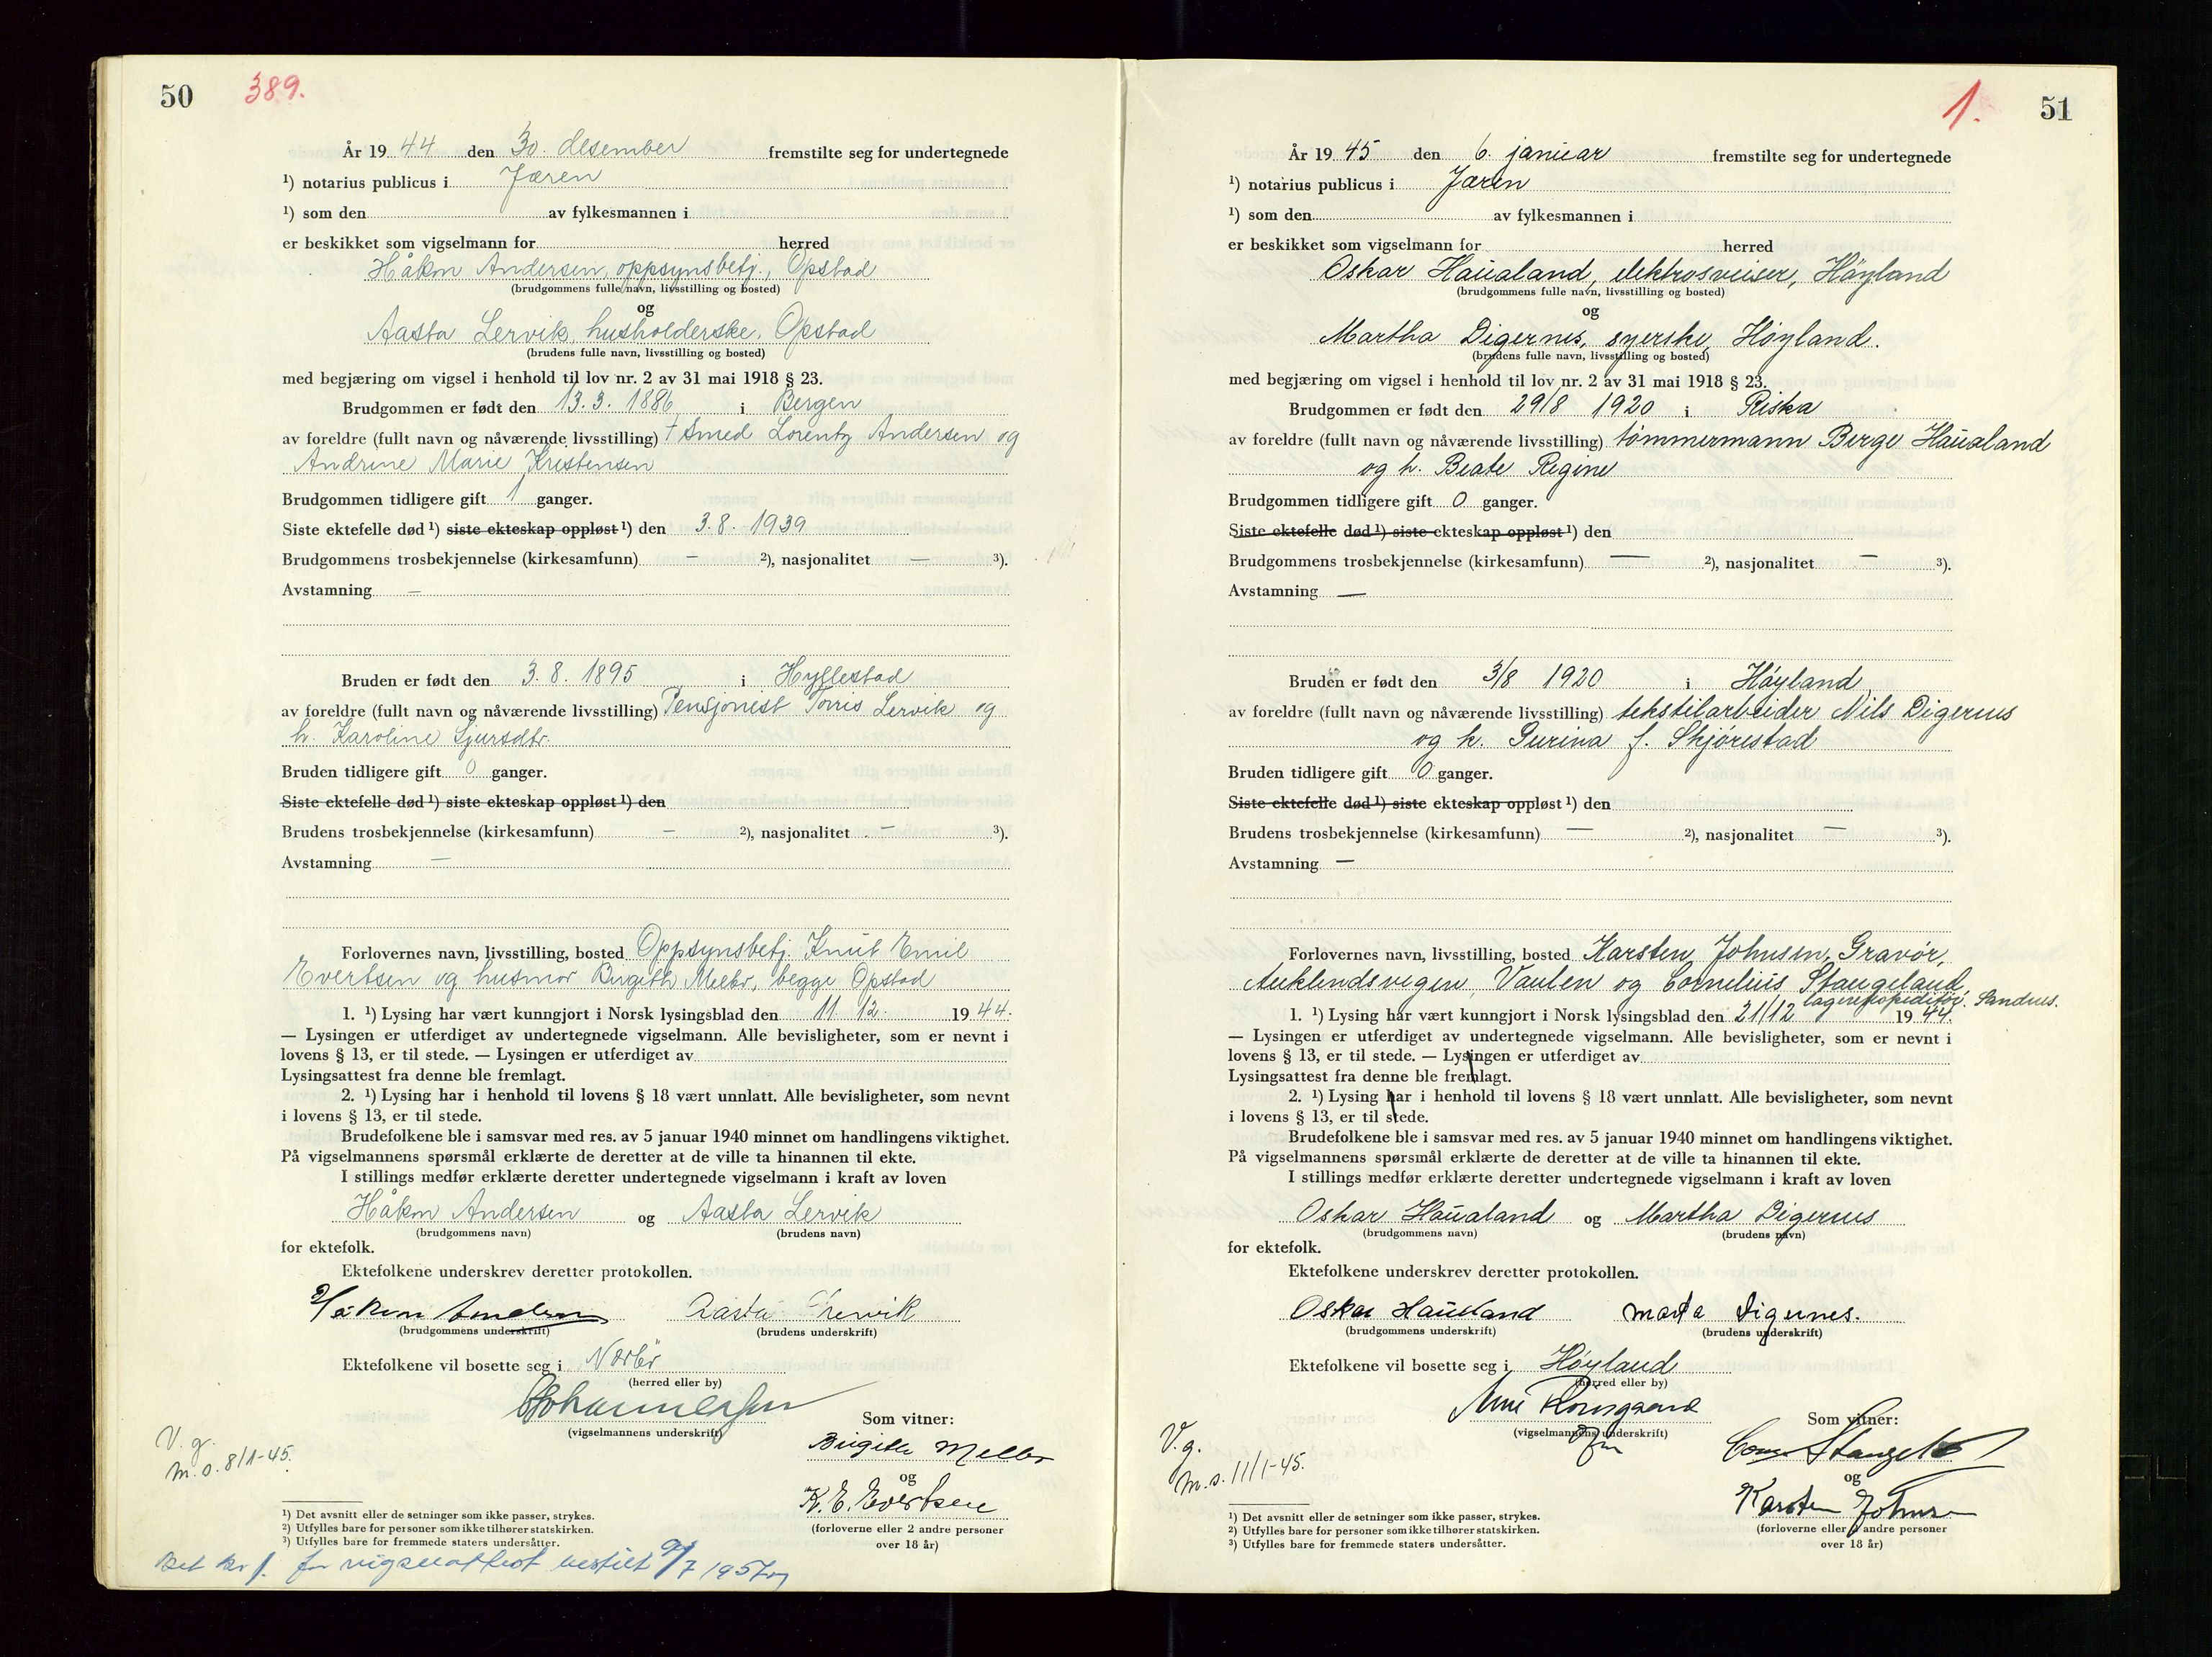 50 389.
År 19 44 den 30. desember fremstilte seg for undertegnede
¹) notarius publicus i Jæren
¹) som den av fylkesmannen i
er beskikket som vigselmann for herred
Håkon Andersen, oppsynsbetj., Opstad
(brudgommens fulle navn, livsstilling og bosted)
og
Aasta Lervik, husholderske, Opstad
(brudens fulle navn, livsstilling og bosted)
med begjæring om vigsel i henhold til lov nr. 2 av 31 mai 1918 § 23.
Brudgommen er født den 13. 3. 1886 i Bergen
av foreldre (fullt navn og nåværende livsstilling) † Smed Lorentz Andersen og
Andrine Marie Kristensen
Brudgommen tidligere gift 1 ganger.
Siste ektefelle død ¹) siste ekteskap oppløst ¹) den 3. 8. 1939
Brudgommens trosbekjennelse (kirkesamfunn) — ²), nasjonalitet — ³).
Avstamning —
Bruden er født den 3. 8. 1895 i Hyllestad
av foreldre (fullt navn og nåværende livsstilling) Pensjonist Torris Lervik og
h. Karoline Sjursdtr.
Bruden tidligere gift 0 ganger.
Siste ektefelle død ¹) siste ekteskap oppløst ¹) den
Brudens trosbekjennelse (kirkesamfunn) — ²), nasjonalitet — ³).
Avstamning —
Forlovernes navn, livsstilling, bosted Oppsynsbetj. Knut Emil
Evertsen og husmor Birgith Melbr, begge Opstad
1. ¹) Lysing har vært kunngjort i Norsk lysingsblad den 11. 12. 19 44.
— Lysingen er utferdiget av undertegnede vigselmann. Alle bevisligheter, som er nevnt i
lovens § 13, er til stede. — Lysingen er utferdiget av
Lysingsattest fra denne ble fremlagt.
2. ¹) Lysing har i henhold til lovens § 18 vært unnlatt. Alle bevisligheter, som nevnt
i lovens § 13, er til stede.
Brudefolkene ble i samsvar med res. av 5 januar 1940 minnet om handlingens viktighet.
På vigselmannens spørsmål erklærte de deretter at de ville ta hinannen til ekte.
I stillings medfør erklærte deretter undertegnede vigselmann i kraft av loven
Håkon Andersen og Aasta Lervik
(brudgommens navn) (brudens navn)
for ektefolk.
Ektefolkene underskrev deretter protokollen.
Håkon Andersen Aasta Lervik
(brudgommens underskrift) (brudens underskrift)
Ektefolkene vil bosette seg i Nærbø
(herred eller by)
Johannessen
(vigselmannens underskrift)
Som vitner:
Birgith Melbr
og
K. E. Evertsen
(forloverne eller 2 andre personer
over 18 år)
V. g.
m. s. 8/1-45.
¹) Det avsnitt eller de setninger som ikke passer, strykes.
²) Utfylles bare for personer som ikke tilhører statskirken.
³) Utfylles bare for fremmede staters undersåtter.
Bet kr 1. for vigselattest bestilt 9/7 1957
1. 51
År 19 45 den 6. januar fremstilte seg for undertegnede
¹) notarius publicus i Jæren
¹) som den av fylkesmannen i
er beskikket som vigselmann for herred
Oskar Haualand, elektrosveiser, Høyland
(brudgommens fulle navn, livsstilling og bosted)
og
Martha Digernes, syerske, Høyland.
(brudens fulle navn, livsstilling og bosted)
med begjæring om vigsel i henhold til lov nr. 2 av 31 mai 1918 § 23.
Brudgommen er født den 29/8 1920 i Riska
av foreldre (fullt navn og nåværende livsstilling) tømmermann Berge Haualand
og h. Beate Regine
Brudgommen tidligere gift 0 ganger.
Siste ektefelle død ¹) siste ekteskap oppløst ¹) den
Brudgommens trosbekjennelse (kirkesamfunn) — ²), nasjonalitet — ³).
Avstamning —
Bruden er født den 3/8 1920 i Høyland
av foreldre (fullt navn og nåværende livsstilling) tekstilarbeider Nils Digernes
og h. Gurina f. Skjørestad
Bruden tidligere gift 0 ganger.
Siste ektefelle død ¹) siste ekteskap oppløst ¹) den
Brudens trosbekjennelse (kirkesamfunn) — ²), nasjonalitet — ³).
Avstamning —
Forlovernes navn, livsstilling, bosted Karsten Johnsen, Gravør,
Auklendsvegen, Vaulen og Cornelius Stangeland,
lagerekspeditør. Sandnes.
1. ¹) Lysing har vært kunngjort i Norsk lysingsblad den 21/12 19 44.
— Lysingen er utferdiget av undertegnede vigselmann. Alle bevisligheter, som er nevnt i
lovens § 13, er til stede. — Lysingen er utferdiget av
Lysingsattest fra denne ble fremlagt.
2. ¹) Lysing har i henhold til lovens § 18 vært unnlatt. Alle bevisligheter, som nevnt
i lovens § 13, er til stede.
Brudefolkene ble i samsvar med res. av 5 januar 1940 minnet om handlingens viktighet.
På vigselmannens spørsmål erklærte de deretter at de ville ta hinannen til ekte.
I stillings medfør erklærte deretter undertegnede vigselmann i kraft av loven
Oskar Haualand og Martha Digernes
(brudgommens navn) (brudens navn)
for ektefolk.
Ektefolkene underskrev deretter protokollen.
Oskar Haualand Marta Digernes.
(brudgommens underskrift) (brudens underskrift)
Ektefolkene vil bosette seg i Høyland
(herred eller by)
(vigselmannens underskrift)
Som vitner:
Corn. Stangeland
og
Karsten Johnsen
(forloverne eller 2 andre personer
over 18 år)
V. g.
m. s. 11/1-45.
¹) Det avsnitt eller de setninger som ikke passer, strykes.
²) Utfylles bare for personer som ikke tilhører statskirken.
³) Utfylles bare for fremmede staters undersåtter.